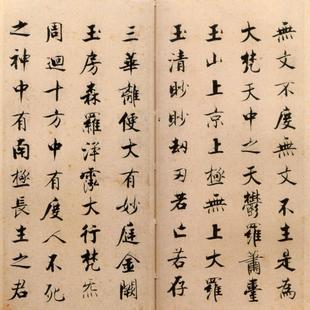 無文不度無文不生是為
大梵天中之天鬱羅蕭臺
玉山上京上極無上大羅
玉清眇眇劫刃若亡若存
三華離便大有妙庭金闕
玉房森羅淨大行梵炁
周迴十方中有度人不死
之神中有南極長生之君